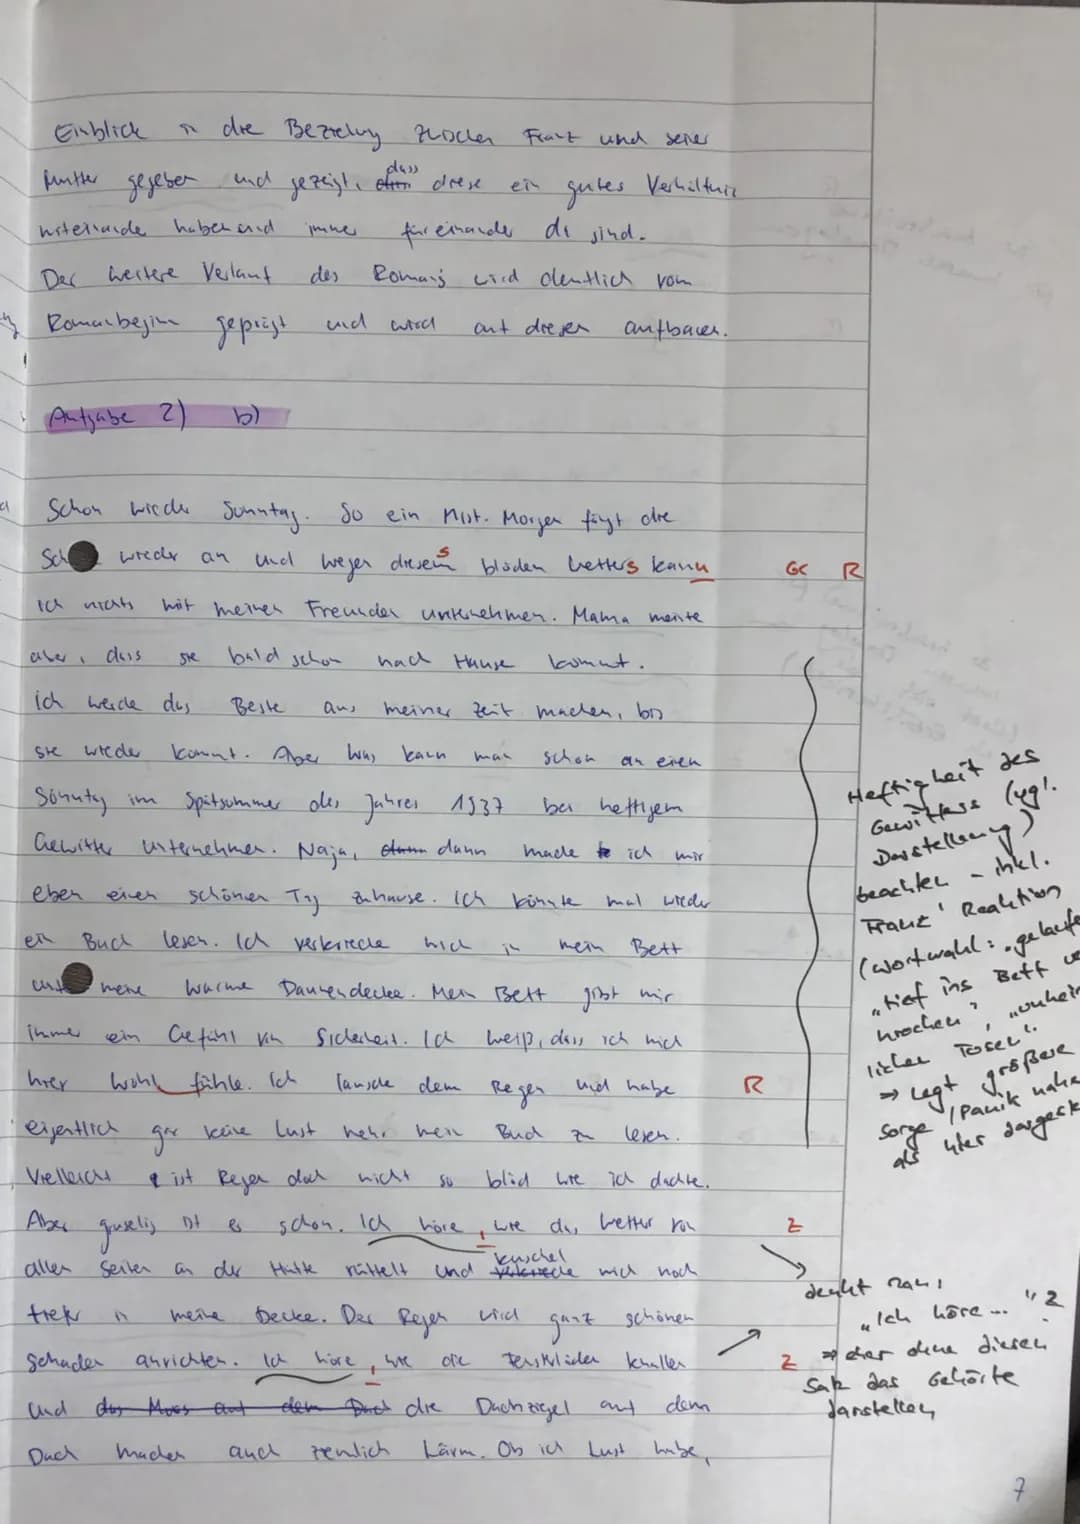 Einblick in die Beziehung zwischen Franz und seiner
Mutter gegeben und gezeigt, dass diese ein gutes Verhältnis
miteinander haben und immer füreinander da sind.
Der weitere Verlauf des Romans wird deutlich vom
Romanbeginn geprägt und wird auf diesen aufbauen.
Aufgabe 2) b)
Schon wieder Sonntag. So ein Mist. Morgen fängt die
Sch wieder an und wegen diesem blöden Wetters kann
s
GR R
ich nichts mit meinen Freunden unternehmen. Mama meinte
aber, dass sie bald schon nach Hause kommt.
Ich werde das Beste aus meiner Zeit machen, bis
sie wieder kommt. Aber was kann man schon an einen
Sonntag im Spätsommer des Jahres 1937 bei heftigem
Gewitter unternehmen. Naja, dann mache ich mir
eben einen schönen Tag zuhause. Ich könnte mal wieder
ein Buch lesen. Ich verkrieche mich in mein Bett
unt meine warme Daunendecke. Mein Bett gibt mir
immer ein Gefühl von Sicherheit. Ich weiß, dass ich mich
hier wohl fühle. Ich lausche dem Regen und habe
R
eigentlich gar keine Lust mehr mein Buch zu lesen.
Vielleicht ist Regen doch nicht so blöd wie ich dachte.
Aber gruselig ist es schon. Ich höre, wie das Wetter von
Z
allen Seiten an der Hütte rüttelt und kuschel mich noch
tiefer in meine Decke. Der Regen wird ganz schönen
Schaden anrichten. Ich höre, wie die Fensterläden knallen
Z
und das Moos auf dem Dach die Dachziegel auf dem
Dach machen auch ziemlich Lärm. Ob ich Lust habe,
Heftigkeit des
Gewitters (vgl.
Darstellung)
beachten - inkl.
Franz' Reaktion
(Wortwahl: "gelaufe
"tief ins Bett
krochen", "unheim
liches Tosen".
⇒ Legt größere
Sorge / Panik nahe
als hier dargest
denkt man:
"Ich höre ..."?
⇒ eher ohne diesen
Satz das Gehörte
darstellen
7